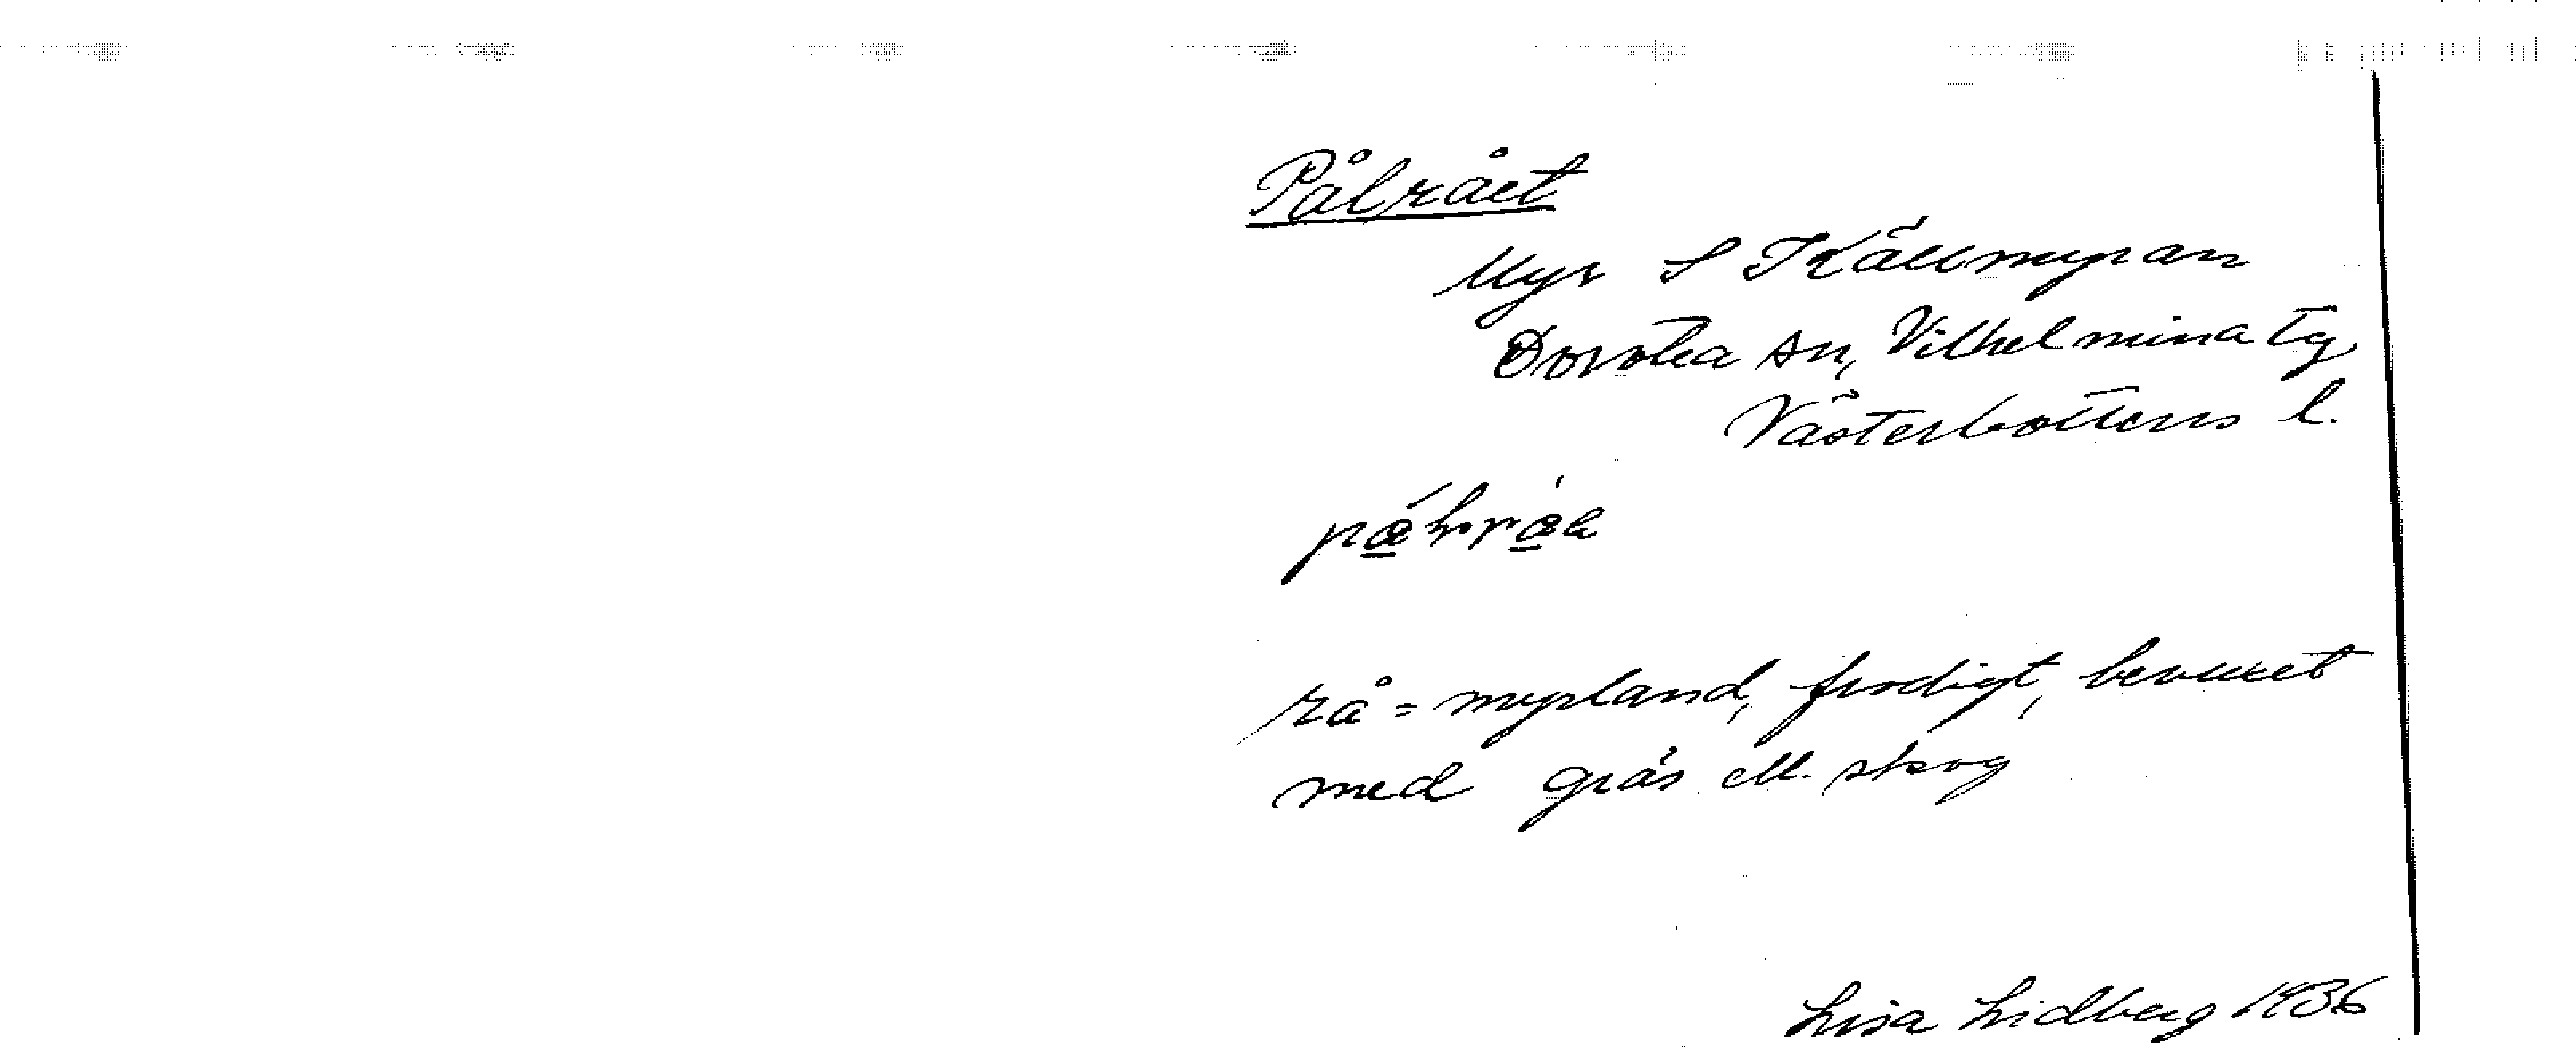 Pålrået
Myr S Källmyran
Dorotea sn, Vilhelmina tg
Västerbottens l.
rå = myrland, frodigt, bevuxet
med gräs ell. skog
Lisa Lidberg 1936